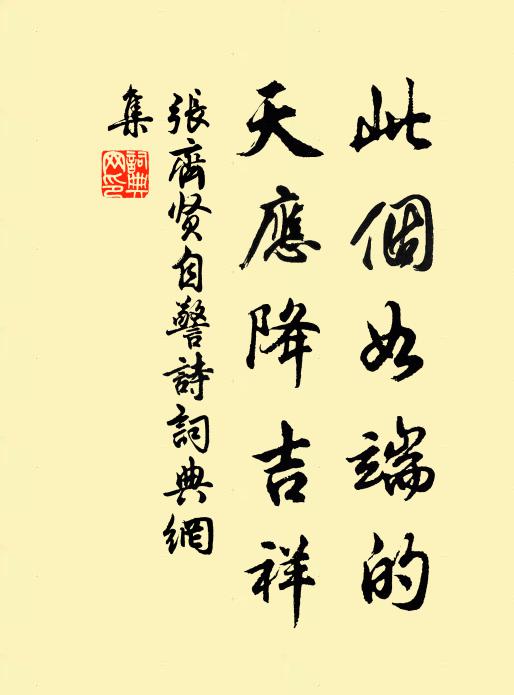 此個如端的
天應降吉祥
張齊贤自警詩詞典網
集
詞典
网印